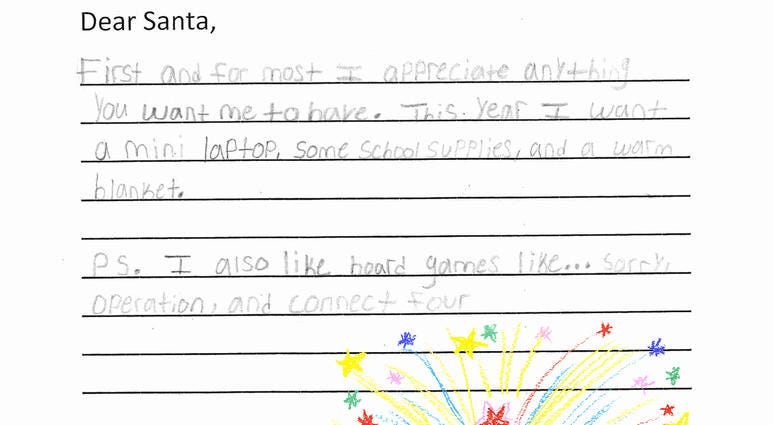 Dear Santa,
First and for most I appreciate anything
you want me to have. This year I want
a mini laptop, some school supplies, and a warm
blanket.
P.S. I also like board games like... Sorry,
operation, and connect four